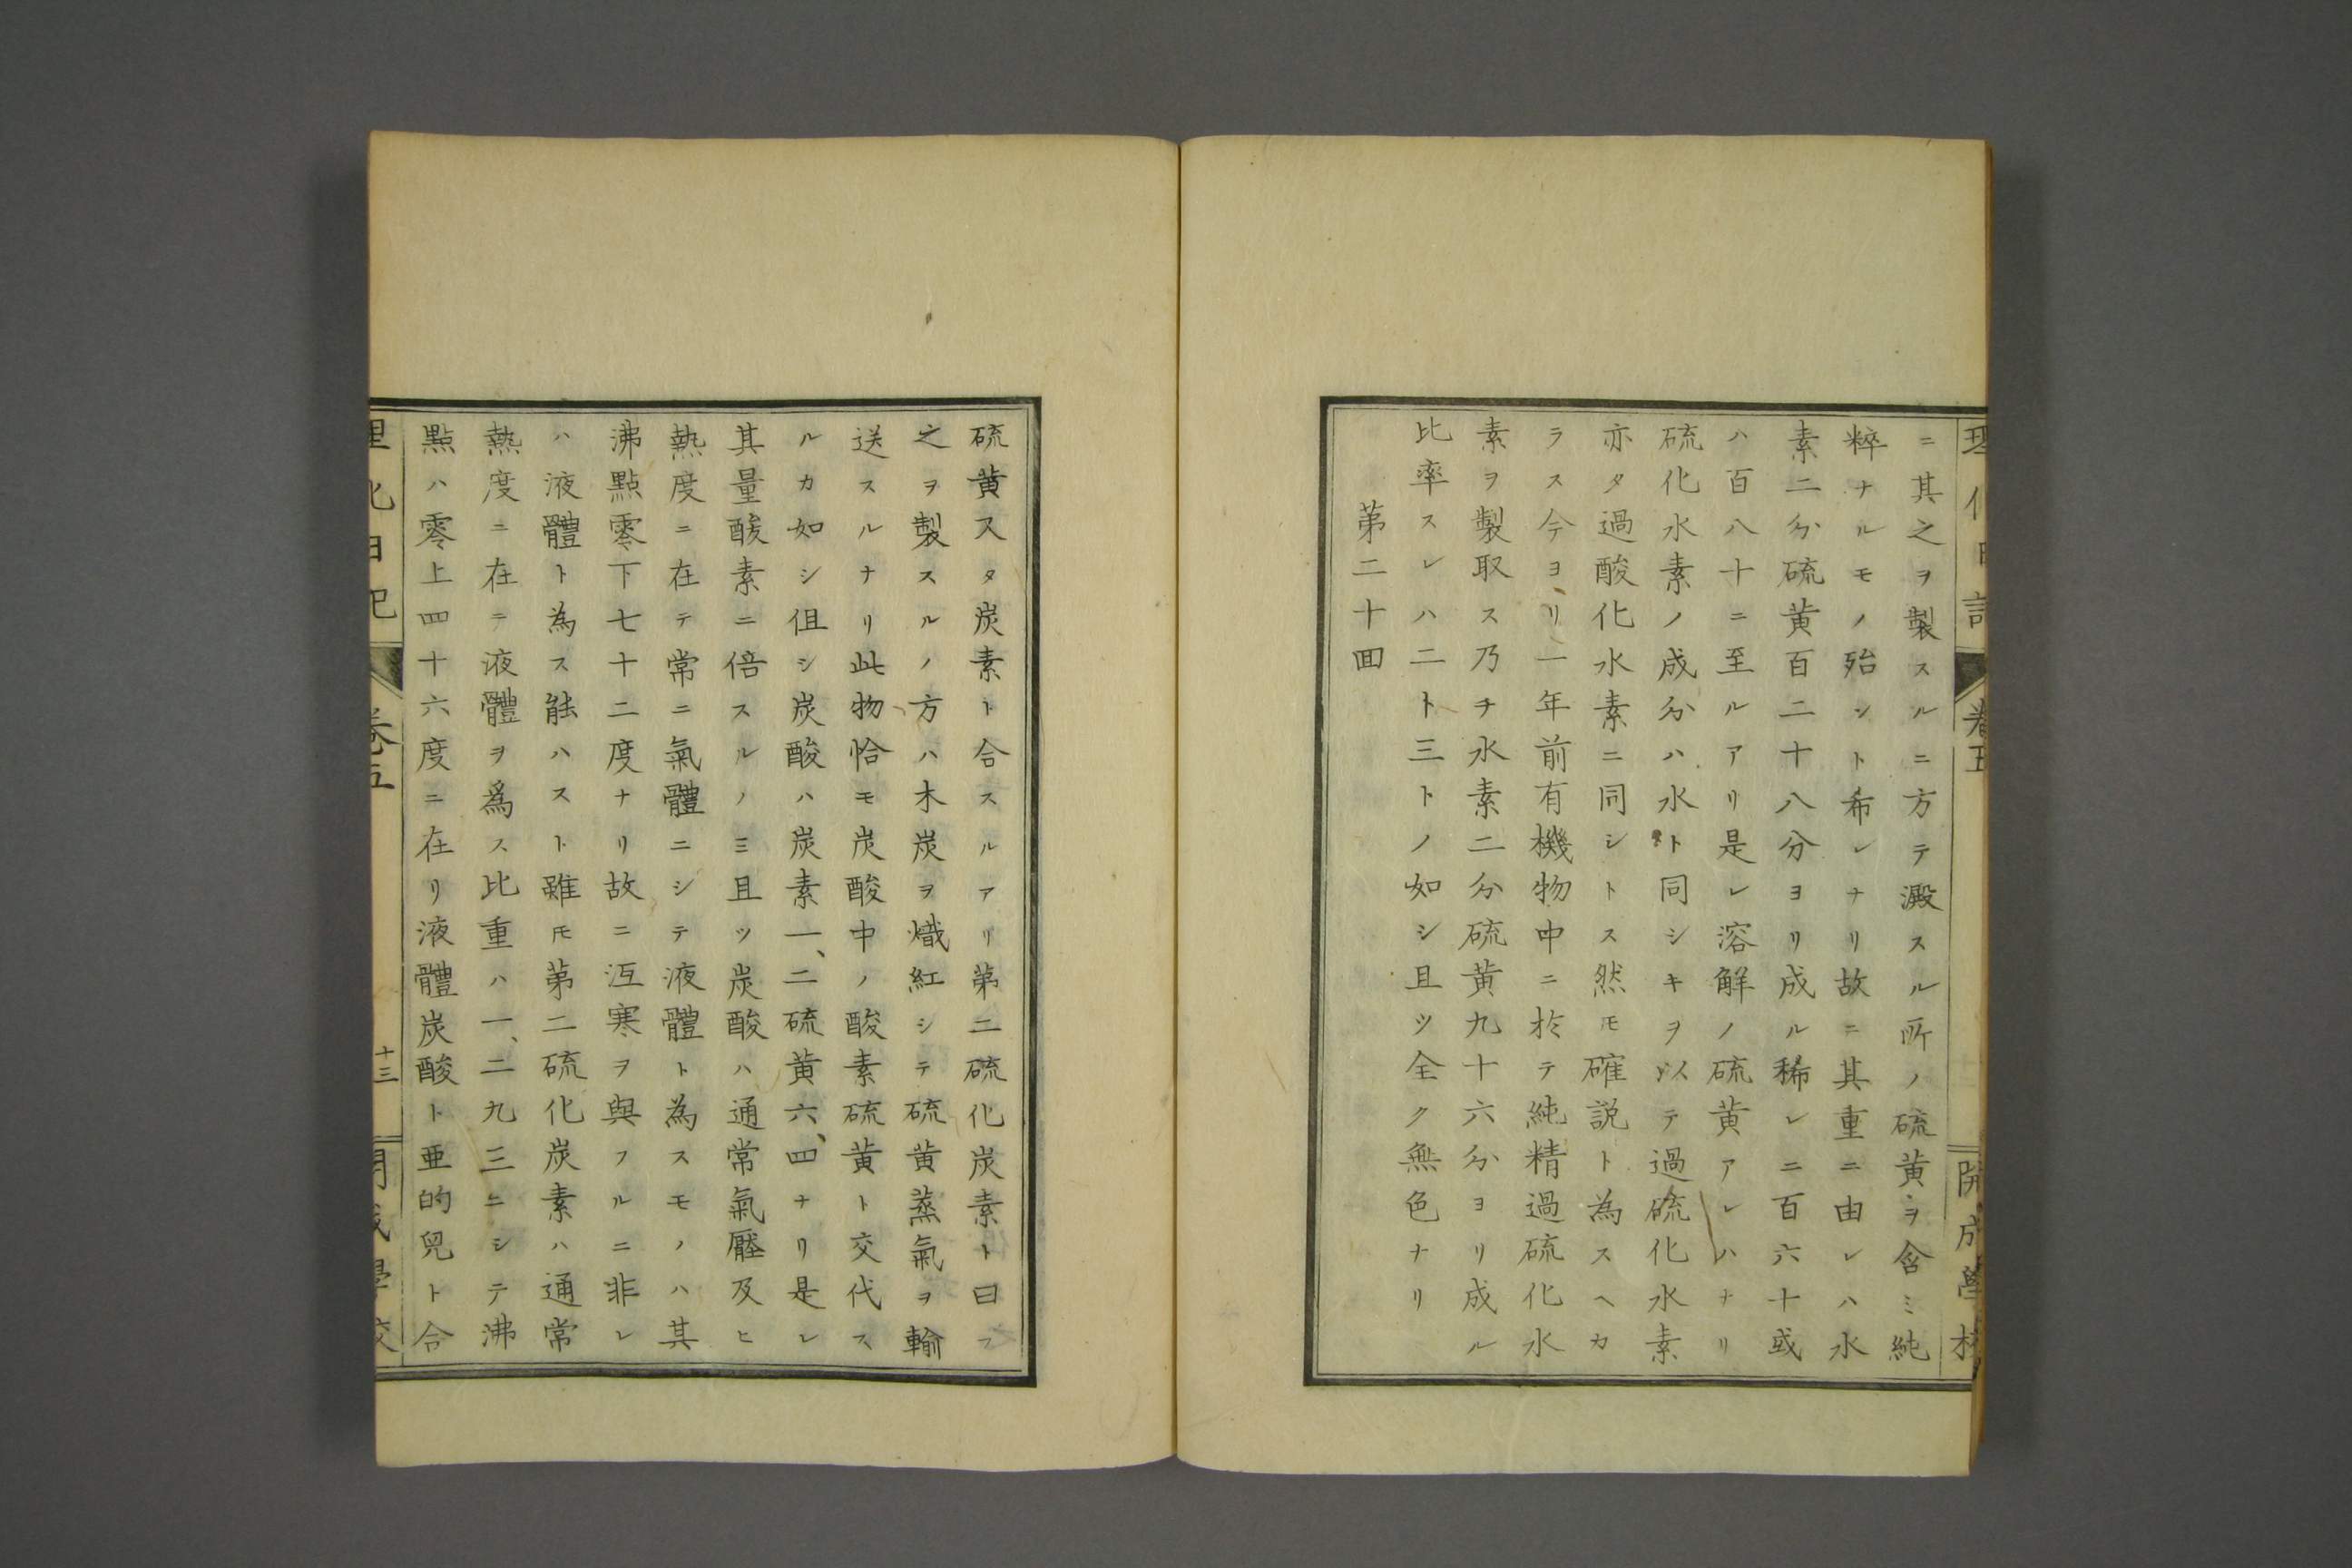 ニ其之ヲ製スルニ方テ澱スル所ノ硫黄ヲ含ミ純
粹ナルモノ殆ント希レナリ故ニ其重ニ由レハ水
素二分硫黄百二十八分ヨリ成ル稀レニ百六十或
ハ百八十ニ至ルアリ是レ溶解ノ硫黄アレハナリ
硫化水素ノ成分ハ水ト同シキヲ以テ過硫化水素
亦タ過酸化水素ニ同シトス然モ確説ト為スヘカ
ラス今ヨリ一年前有機物中ニ於テ純精過硫化水
素ヲ製取ス乃チ水素二分硫黄九十六分ヨリ成ル
比率スレハ二ト三トノ如シ且ツ全ク無色ナリ
第二十四
硫黄又タ炭素ト合スルアリ第二硫化炭素ト曰フ
之ヲ製スルノ方ハ木炭ヲ熾紅シテ硫黄蒸氣ヲ輸
送スルナリ此物恰モ炭酸中ノ酸素硫黄ト交代ス
ルカ如シ但シ炭酸ハ炭素一、二硫黄六、四ナリ是レ
其量酸素ニ倍スルノミ且ツ炭酸ハ通常氣壓及ヒ
熱度ニ在テ常ニ氣體ニシテ液體ト為スモノハ其
沸點零下七十二度ナリ故ニ冱寒ヲ與フルニ非レ
ハ液體ト為ス能ハスト雖モ第二硫化炭素ハ通常
熱度ニ在テ液體ヲ爲ス比重ハ一、二九三ニシテ沸
點ハ零上四十六度ニ在リ液體炭酸ト亜的兒ト合
理化日記
卷五
十三
開成學校